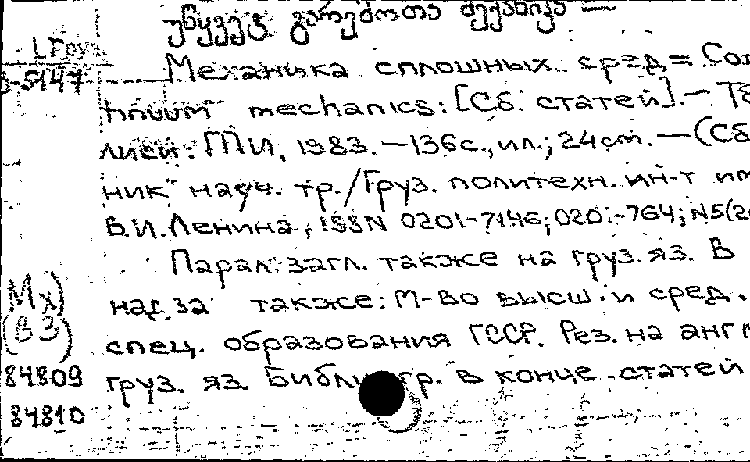 უწყვეტ გარემოთა მექანიკა —
Механика сплошных сред = Con
tinuum mechanics: [Сб. статей]. — Тби
лиси: ГПИ, 1983. — 136с., ил.; 24см. — (Сбор
ник науч. тр./Груз. политехн. ин-т им.
В.И. Ленина, ISSN 0201-7146; 0201-764; N5(2
Парал. загл. также на груз. яз. В
над.за также: М-во высш. и сред.
спец. образования ГССР. Рез. на англ
груз. яз. Библиогр. в конце статей
Мх)
(ВЗ)
84809
84810